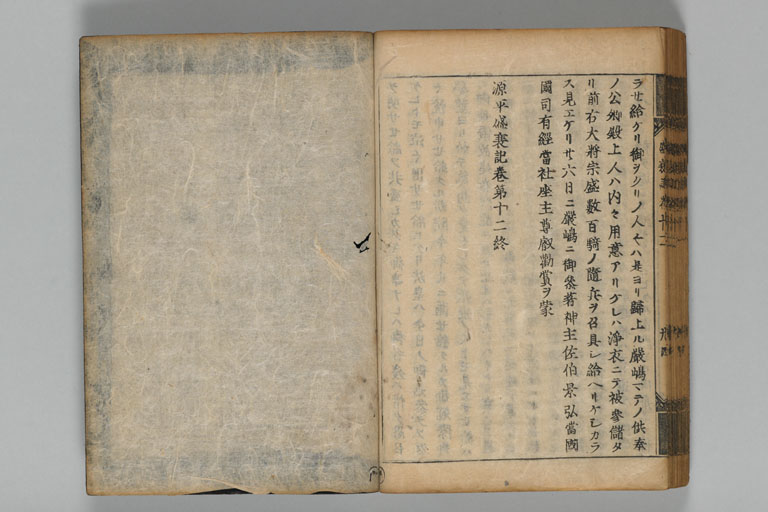 ラセ給ケリ御ヲクリノ人々ハ是ヨリ歸上ル嚴嶋マテノ供奉
ノ公卿殿上人ハ内々用意アリケレハ淨衣ニテ被參儲タ
リ前右大將宗盛數百騎ノ隨兵ヲ召具シ給ヘリケシカラ
ス見エケリ廿六日ニ嚴嶋ニ御參著神主佐伯景弘當國
國司有經當社座主尊叡勸賞ヲ蒙
源平盛衰記卷第十二終